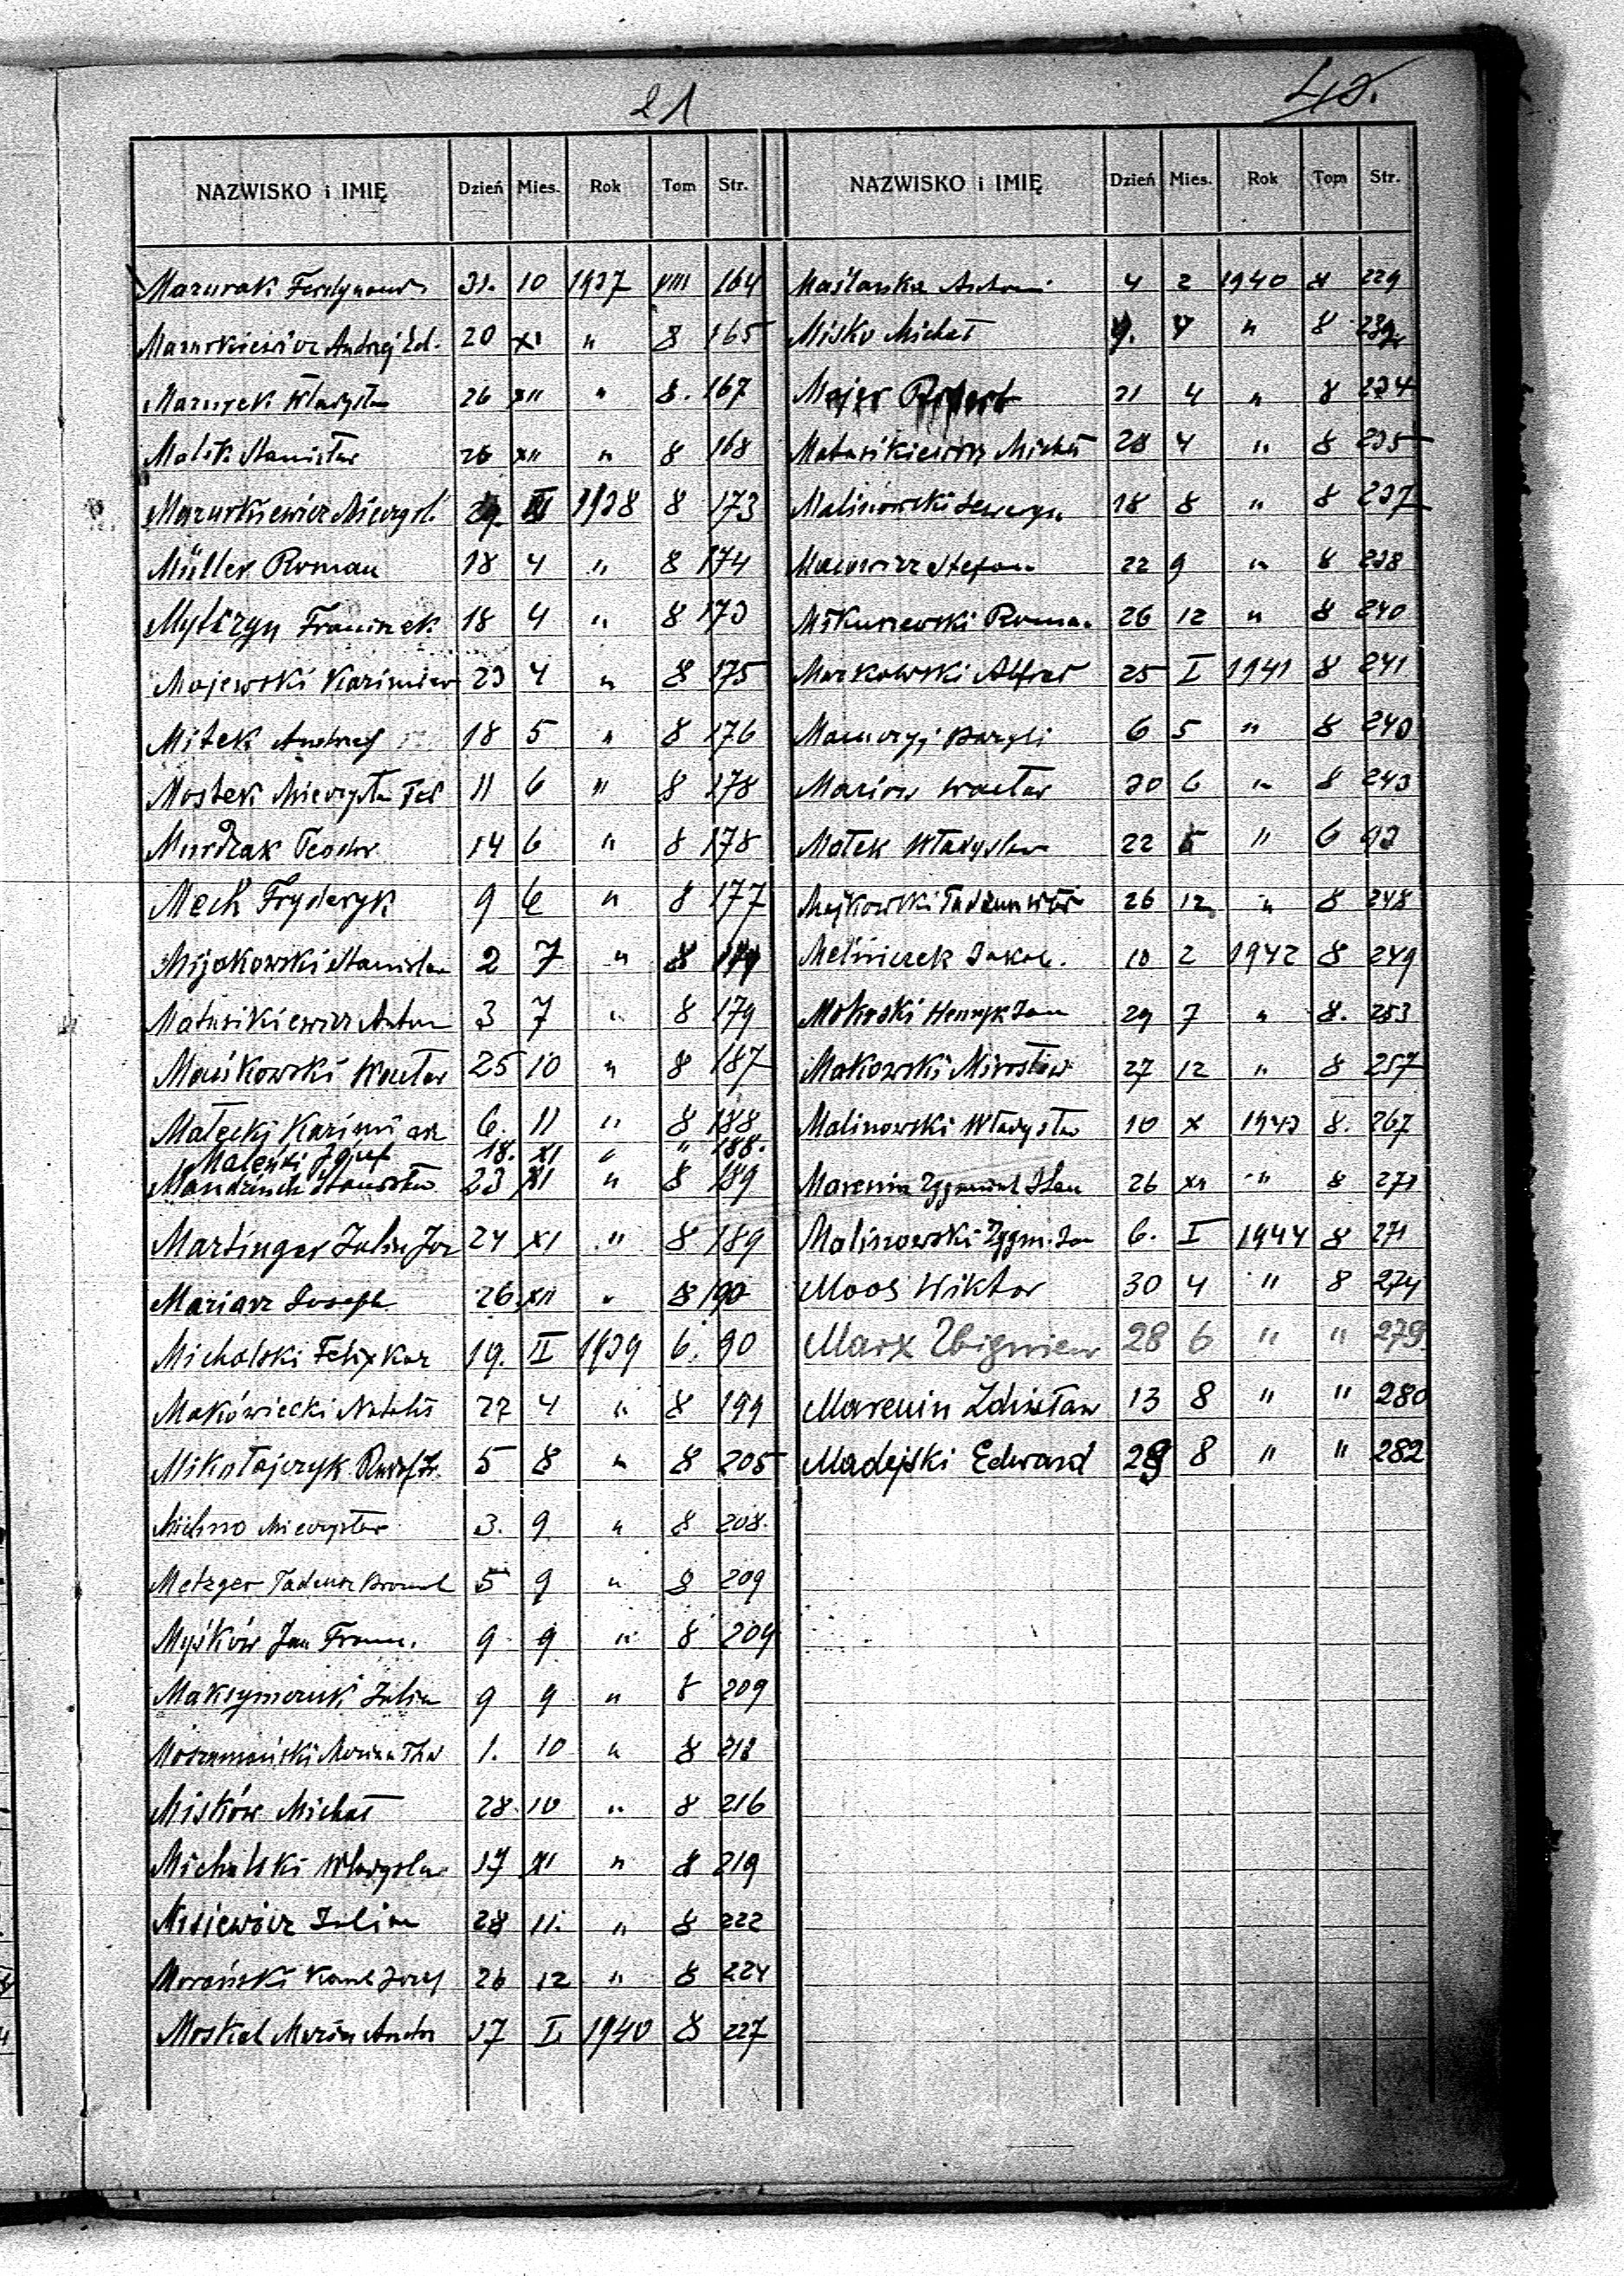 21
48.
NAZWISKO i IMIĘ Dzień Mies. Rok Tom Str.
Mazurak Ferdynand 31. 10 1937 VIII 164
Mazurkiewicz Andrzej Ed. 20 XI " 8 165
Mazurek Władysław 26 XII " 8. 167
Malik Stanisław 26 XII " 8 168
Mazurkiewicz Mieczysł. III 1938 8 173
Müller Roman 18 4 " 8 174
Mytczyn Franciszek 18 4 " 8 173
Majewski Kazimierz 23 4 " 8 175
Mitek Andrzej 18 5 " 8 176
Mostek Mieczysław Fel 11 6 " 8 178
Murdzak Teodor 14 6 " 8 178
Mech Fryderyk 9 6 " 8 177
Mijakowski Stanisław 2 7 " 8 179
Matusikiewicz Anton 3 7 " 8 179
Mańkowski Wacław 25 10 " 8 187
Małecki Kazimierz 6. 11 " 8 188
Maleńki Józef 18. XI " " 188.
Mandziuch Stanisław 23 XI " 8 189
Martinger Julin Joz 24 XI " 8 189
Mariasz Joseph 26 XII " 8 190
Michalski Felix Kar 19. II 1939 6. 90
Makówiecki Natalis 27 4 " 8 199
Mikołajczyk Rudolf 5 8 " 8 205
Michno Mieczysław 3. 9 " 8 208.
Metzger Tadeusz Bronisł 5 9 " 8 209
Myśków Jan Franc. 9 9 " 8 209
Maksymoruk Julian 9 9 " 8 209
1. 10 " 8 212
Misków Michał 28. 10 " 8 216
Michalski Władysław 17 XI " 8 219
Misiewicz Julian 28 11. " 8 222
Morański Karol Józef 26 12 " 8 224
Moskal Marian Anton 17 I 1940 8 227
NAZWISKO i IMIĘ Dzień Mies. Rok Tom Str.
Maślanka Antoni 4 2 1940 8 229
Misko Michał 9. 4 " 8
Majer Robert 21 4 " 8 234
Matusikiewicz Michał 28 4 " 8 235
Malinowski Seweryn 18 8 " 8 237
Macewicz Stefan 22 9 " 8 238
Mikuszewski Roman 26 12 " 8 240
Markowski Alfred 25 I 1941 8 241
Bazyli 6 5 " 8 243
Mariow Wacław 30 6 " 8 243
Małek Władysław 22 5 " 6 93
Majkowski Tadeusz Wł 26 12 " 8 248
Melniczek Jakob. 10 2 1942 8 249
Mokrski Henryk Jan 29 7 " 8. 253
Makowski Mirosław 27 12 " 8 257
Malinowski Władysław 10 X 1943 8. 267
Marenin Zygmunt Jan 26 XII " 8 271
Malinowski Zygm. Jan 6. I 1944 8 271
Moos Wiktor 30 4 " 8 274
Marx Zbigniew 28 6 " " 279
Marenin Zdzisław 13 8 " " 280
Madejski Edward 29 8 " " 282